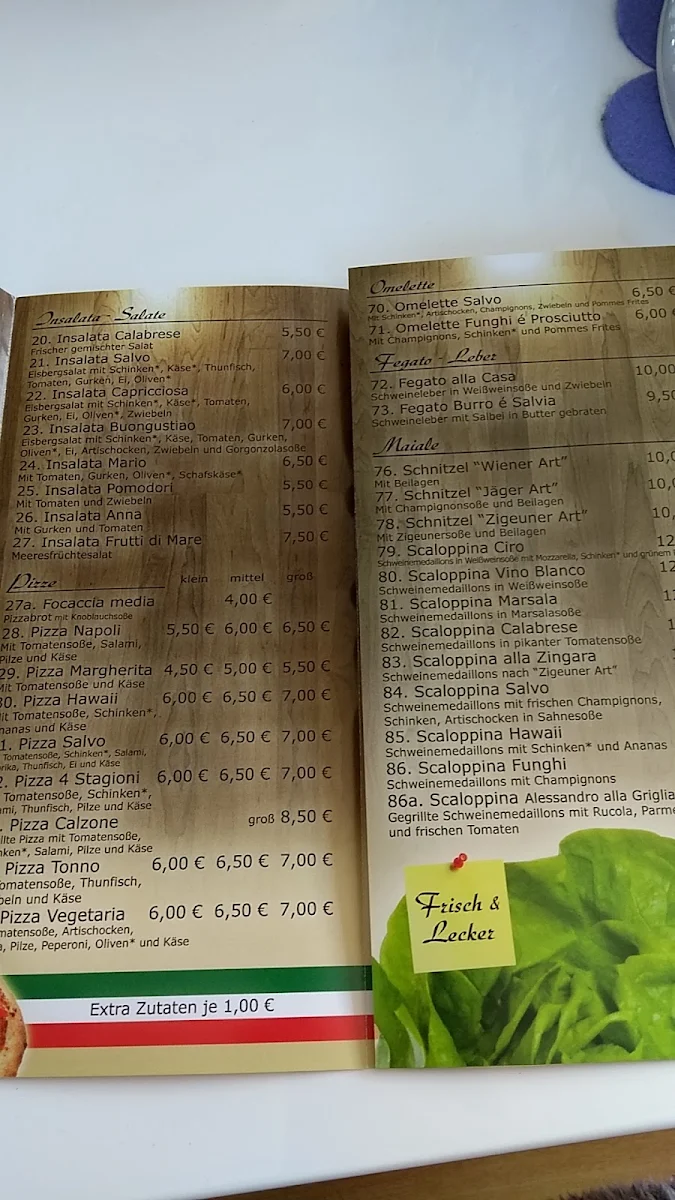 Insalata - Salate
20. Insalata Calabrese 5,50 €
Frischer gemischter Salat
21. Insalata Salvo 7,00 €
Eisbergsalat mit Schinken*, Käse*, Thunfisch,
Tomaten, Gurken, Ei, Oliven*
22. Insalata Capricciosa 6,00 €
Eisbergsalat mit Schinken*, Käse*, Tomaten,
Gurken, Ei, Oliven*, Zwiebeln
23. Insalata Buongustiao 7,00 €
Eisbergsalat mit Schinken*, Käse, Tomaten, Gurken,
Oliven*, Ei, Artischocken, Zwiebeln und Gorgonzolasoße
24. Insalata Mario 6,50 €
Mit Tomaten, Gurken, Oliven*, Schafskäse*
25. Insalata Pomodori 5,50 €
Mit Tomaten und Zwiebeln
26. Insalata Anna 5,50 €
Mit Gurken und Tomaten
27. Insalata Frutti di Mare 7,50 €
Meeresfrüchtesalat
Pizze klein mittel groß
27a. Focaccia media 4,00 €
Pizzabrot mit Knoblauchsoße
28. Pizza Napoli 5,50 € 6,00 € 6,50 €
Mit Tomatensoße, Salami,
Pilze und Käse
29. Pizza Margherita 4,50 € 5,00 € 5,50 €
Mit Tomatensoße und Käse
30. Pizza Hawaii 6,00 € 6,50 € 7,00 €
Mit Tomatensoße, Schinken*,
nanas und Käse
1. Pizza Salvo 6,00 € 6,50 € 7,00 €
Tomatensoße, Schinken*, Salami,
rika, Thunfisch, Ei und Käse
2. Pizza 4 Stagioni 6,00 € 6,50 € 7,00 €
Tomatensoße, Schinken*,
mi, Thunfisch, Pilze und Käse
. Pizza Calzone groß 8,50 €
llte Pizza mit Tomatensoße,
nken*, Salami, Pilze und Käse
Pizza Tonno 6,00 € 6,50 € 7,00 €
omatensoße, Thunfisch,
beln und Käse
Pizza Vegetaria 6,00 € 6,50 € 7,00 €
matensoße, Artischocken,
a, Pilze, Peperoni, Oliven* und Käse
Extra Zutaten je 1,00 €
Omelette
70. Omelette Salvo 6,50 €
Mit Schinken*, Artischocken, Champignons, Zwiebeln und Pommes Frites
71. Omelette Funghi é Prosciutto 6,00
Mit Champignons, Schinken* und Pommes Frites
Fegato - Leber
72. Fegato alla Casa 10,00
Schweineleber in Weißweinsoße und Zwiebeln
73. Fegato Burro é Salvia 9,50
Schweineleber mit Salbei in Butter gebraten
Maiale
76. Schnitzel "Wiener Art" 10,
Mit Beilagen
77. Schnitzel "Jäger Art" 10,
Mit Champignonsoße und Beilagen
78. Schnitzel "Zigeuner Art" 10,
Mit Zigeunersoße und Beilagen
79. Scaloppina Ciro 12
Schweinemedaillons in Weißweinsoße mit Mozzarella, Schinken* und grünem
80. Scaloppina Vino Blanco 12
Schweinemedaillons in Weißweinsoße
81. Scaloppina Marsala
Schweinemedaillons in Marsalasoße
82. Scaloppina Calabrese
Schweinemedaillons in pikanter Tomatensoße
83. Scaloppina alla Zingara
Schweinemedaillons nach "Zigeuner Art"
84. Scaloppina Salvo
Schweinemedaillons mit frischen Champignons,
Schinken, Artischocken in Sahnesoße
85. Scaloppina Hawaii
Schweinemedaillons mit Schinken* und Ananas
86. Scaloppina Funghi
Schweinemedaillons mit Champignons
86a. Scaloppina Alessandro alla Griglia
Gegrillte Schweinemedaillons mit Rucola, Parme
und frischen Tomaten
Frisch &
Lecker